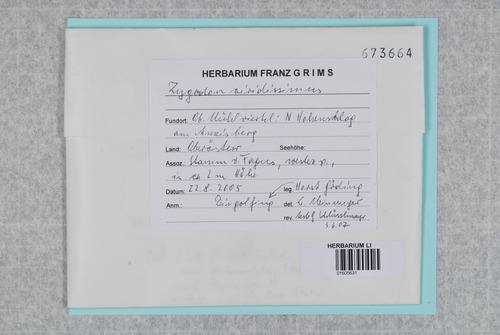 673664
HERBARIUM FRANZ GRIMS
Zygodon viridissimus
Fundort: Ob. Mühlviertel: N Hohenschlag
am Ameisberg
Land: Oberösterr. Seehöhe:
Assoz.: Stamm v. Fagus,
in ca 2 m Höhe
Datum: 22.8.2005 leg. Horst Göding
Anm.: Dingolfing det.
rev. Schlüsslmayr
3.6.07
HERBARIUM LI
01605631